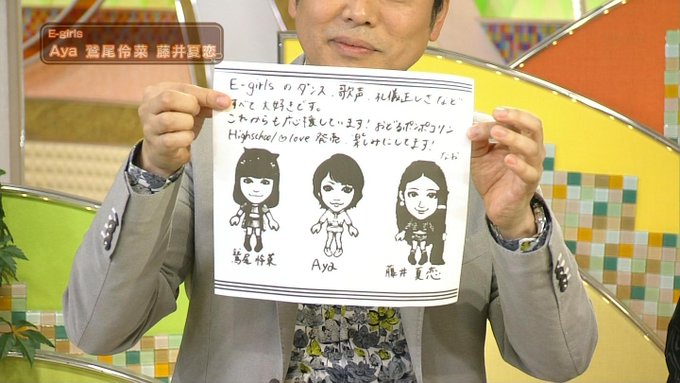 E-girls
Aya 鷲尾伶菜 藤井夏恋
E-girls のダンス、歌声、礼儀正しさなど
すべて大好きです。
これからも応援しています! おどるポンポコリン
Highschool♡love 発売、楽しみにしてます!
なお
鷲尾伶菜
Aya
藤井夏恋